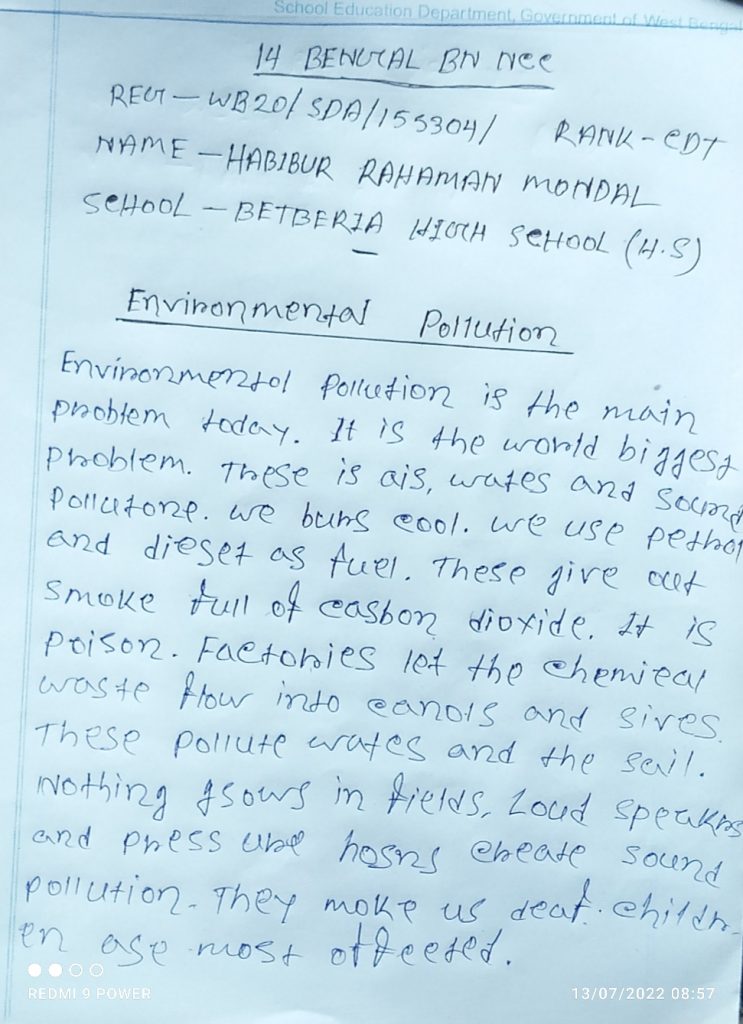 School Education Department, Government of West Bengal
14 BENGAL BN NCC
REGT - WB20/SDA/155304/ RANK - CDT
NAME - HABIBUR RAHAMAN MONDAL
SCHOOL - BETBERIA HIGH SCHOOL (H.S)
Environmental Pollution
Environmental pollution is the main
problem today. It is the world biggest
problem. These is air, water and sound
pollutone. we burs cool. we use petrol
and diesel as fuel. These give out
smoke full of carbon dioxide. It is
poison. Factories let the chemical
waste flow into canols and rives.
These pollute water and the sail.
Nothing grows in fields. Loud speakrs
and press ure horns create sound
pollution. They make us deaf. childr-
en are most affected.
REDMI 9 POWER
13/07/2022 08:57